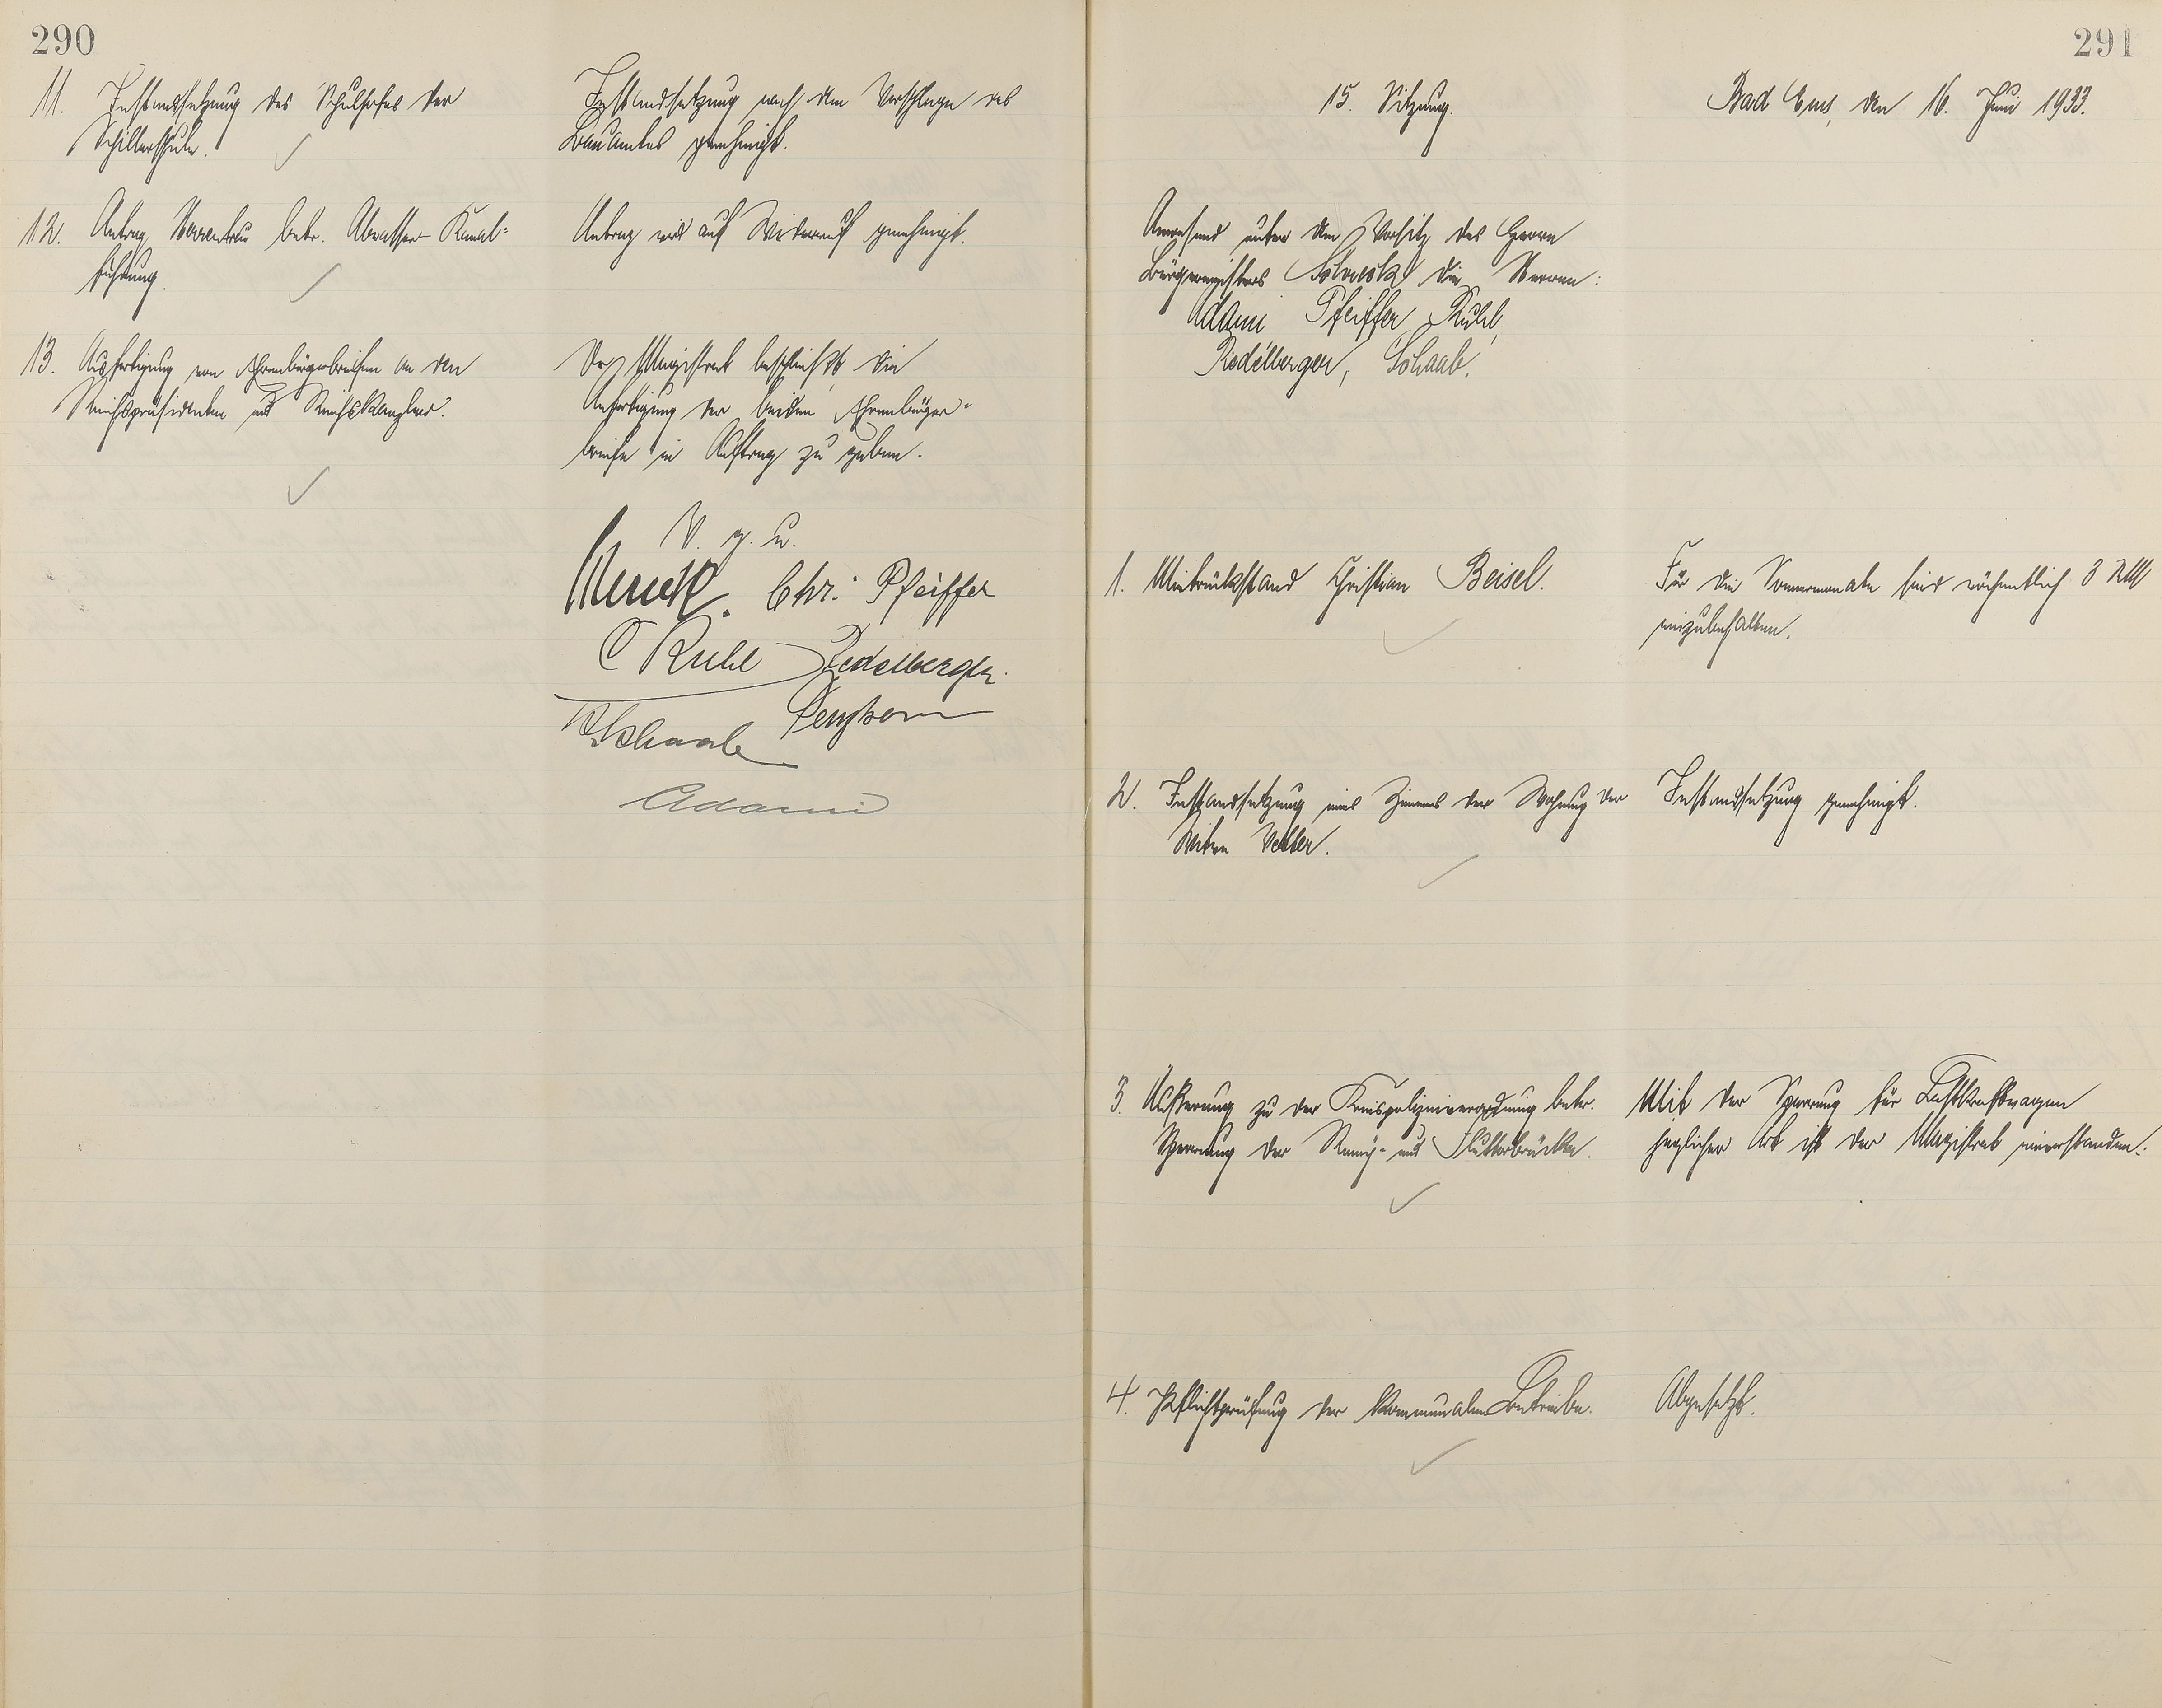 290
11. Instandsetzung des Schulhofes der
Schillerschule.
Instandsetzung nach dem Vorschlage des
Bauamtes genehmigt.
12. Antrag betr. Abwasser-Kanal-
führung.
Antrag wird auf Widerruf genehmigt.
13. Ausfertigung von Ehrenbürgerbriefen an den
Reichspräsidenten und Reichskanzler.
Der Magistrat beschließt die
Anfertigung der beiden Ehrenbürger-
briefe in Auftrag zu geben.
V. g. u.
Chr. Pfeiffer
C Ruhl Redelberger.
Schaab
Adami
291
15. Sitzung.
Bad Ems, den 16. Juni 1933.
Anwesend unter dem Vorsitz des Herrn
Bürgermeisters die Herren:
Adami Pfeiffer, Ruhl,
Redelberger, Schaab.
1. Mietrückstand Christian Beisel.
Für die Sommermonate sind wöchentlich 3 RM
einzubehalten.
2. Instandsetzung eines Zimmers der Wohnung der
Witwe Vetter.
Instandsetzung genehmigt.
3. Äußerung zu der Kreispolizeiverordnung betr.
Sperrung der Remy- und Flutterbrücke.
Mit der Sperrung für Lastkraftwagen
jeglicher Art ist der Magistrat einverstanden.
4. Pflichtprüfung der kommunalen Betriebe.
Abgesetzt.